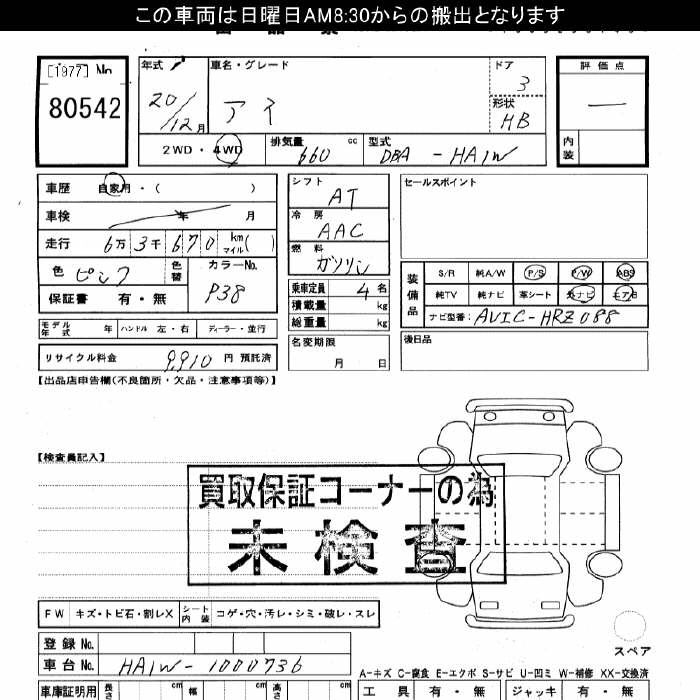 この車両は日曜日AM8:30からの搬出となります
[1977] No
80542
年式
20/12月
車名・グレード
アイ
ドア
3
形状
HB
評価点
—
内装
2WD・4WD
排気量
660 cc
型式
DBA-HA1W
車歴 自家用・( )
車検 年 月
走行 6万3千670 km マイル ( )
色 ピンク 色替
カラーNo.
P38
保証書 有・無
モデル年式 年 ハンドル 左・右 ディーラー・並行
リサイクル料金 9,910 円 預託済
シフト
AT
冷房
AAC
燃料
ガソリン
乗車定員 4 名
積載量 kg
総重量 kg
名変期限
月 日
セールスポイント
装備品
S/R 純A/W P/S P/W ABS
純TV 純ナビ 革シート 外ナビ エアB
ナビ型番: AVIC-HRZ088
後日品
【出品店申告欄(不良箇所・欠品・注意事項等)】
【検査員記入】
買取保証コーナーの為
未検査
FW キズ・トビ石・割レX シート内装 コゲ・穴・汚レ・シミ・破レ・スレ
スペア
登録No.
車台No. HA1W-1000736
A-キズ C-腐食 E-エクボ S-サビ U-凹ミ W-補修 XX-交換済
車庫証明用 長さ cm 幅 cm 高さ cm
工具 有・無 ジャッキ 有・無